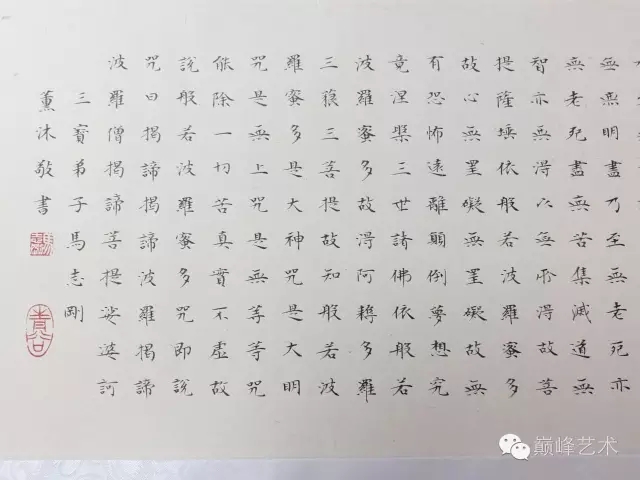 無無明盡乃至無老死亦
無老死盡無苦集滅道無
智亦無得以無所得故菩
提薩埵依般若波羅蜜多
故心無罣礙無罣礙故無
有恐怖遠離顛倒夢想究
竟涅槃三世諸佛依般若
波羅蜜多故得阿耨多羅
三藐三菩提故知般若波
羅蜜多是大神咒是大明
咒是無上咒是無等等咒
能除一切苦真實不虛故
說般若波羅蜜多咒即說
咒曰揭諦揭諦波羅揭諦
波羅僧揭諦菩提娑婆訶
三寶弟子馬志剛
薰沐敬書
青谷
巅峰艺术